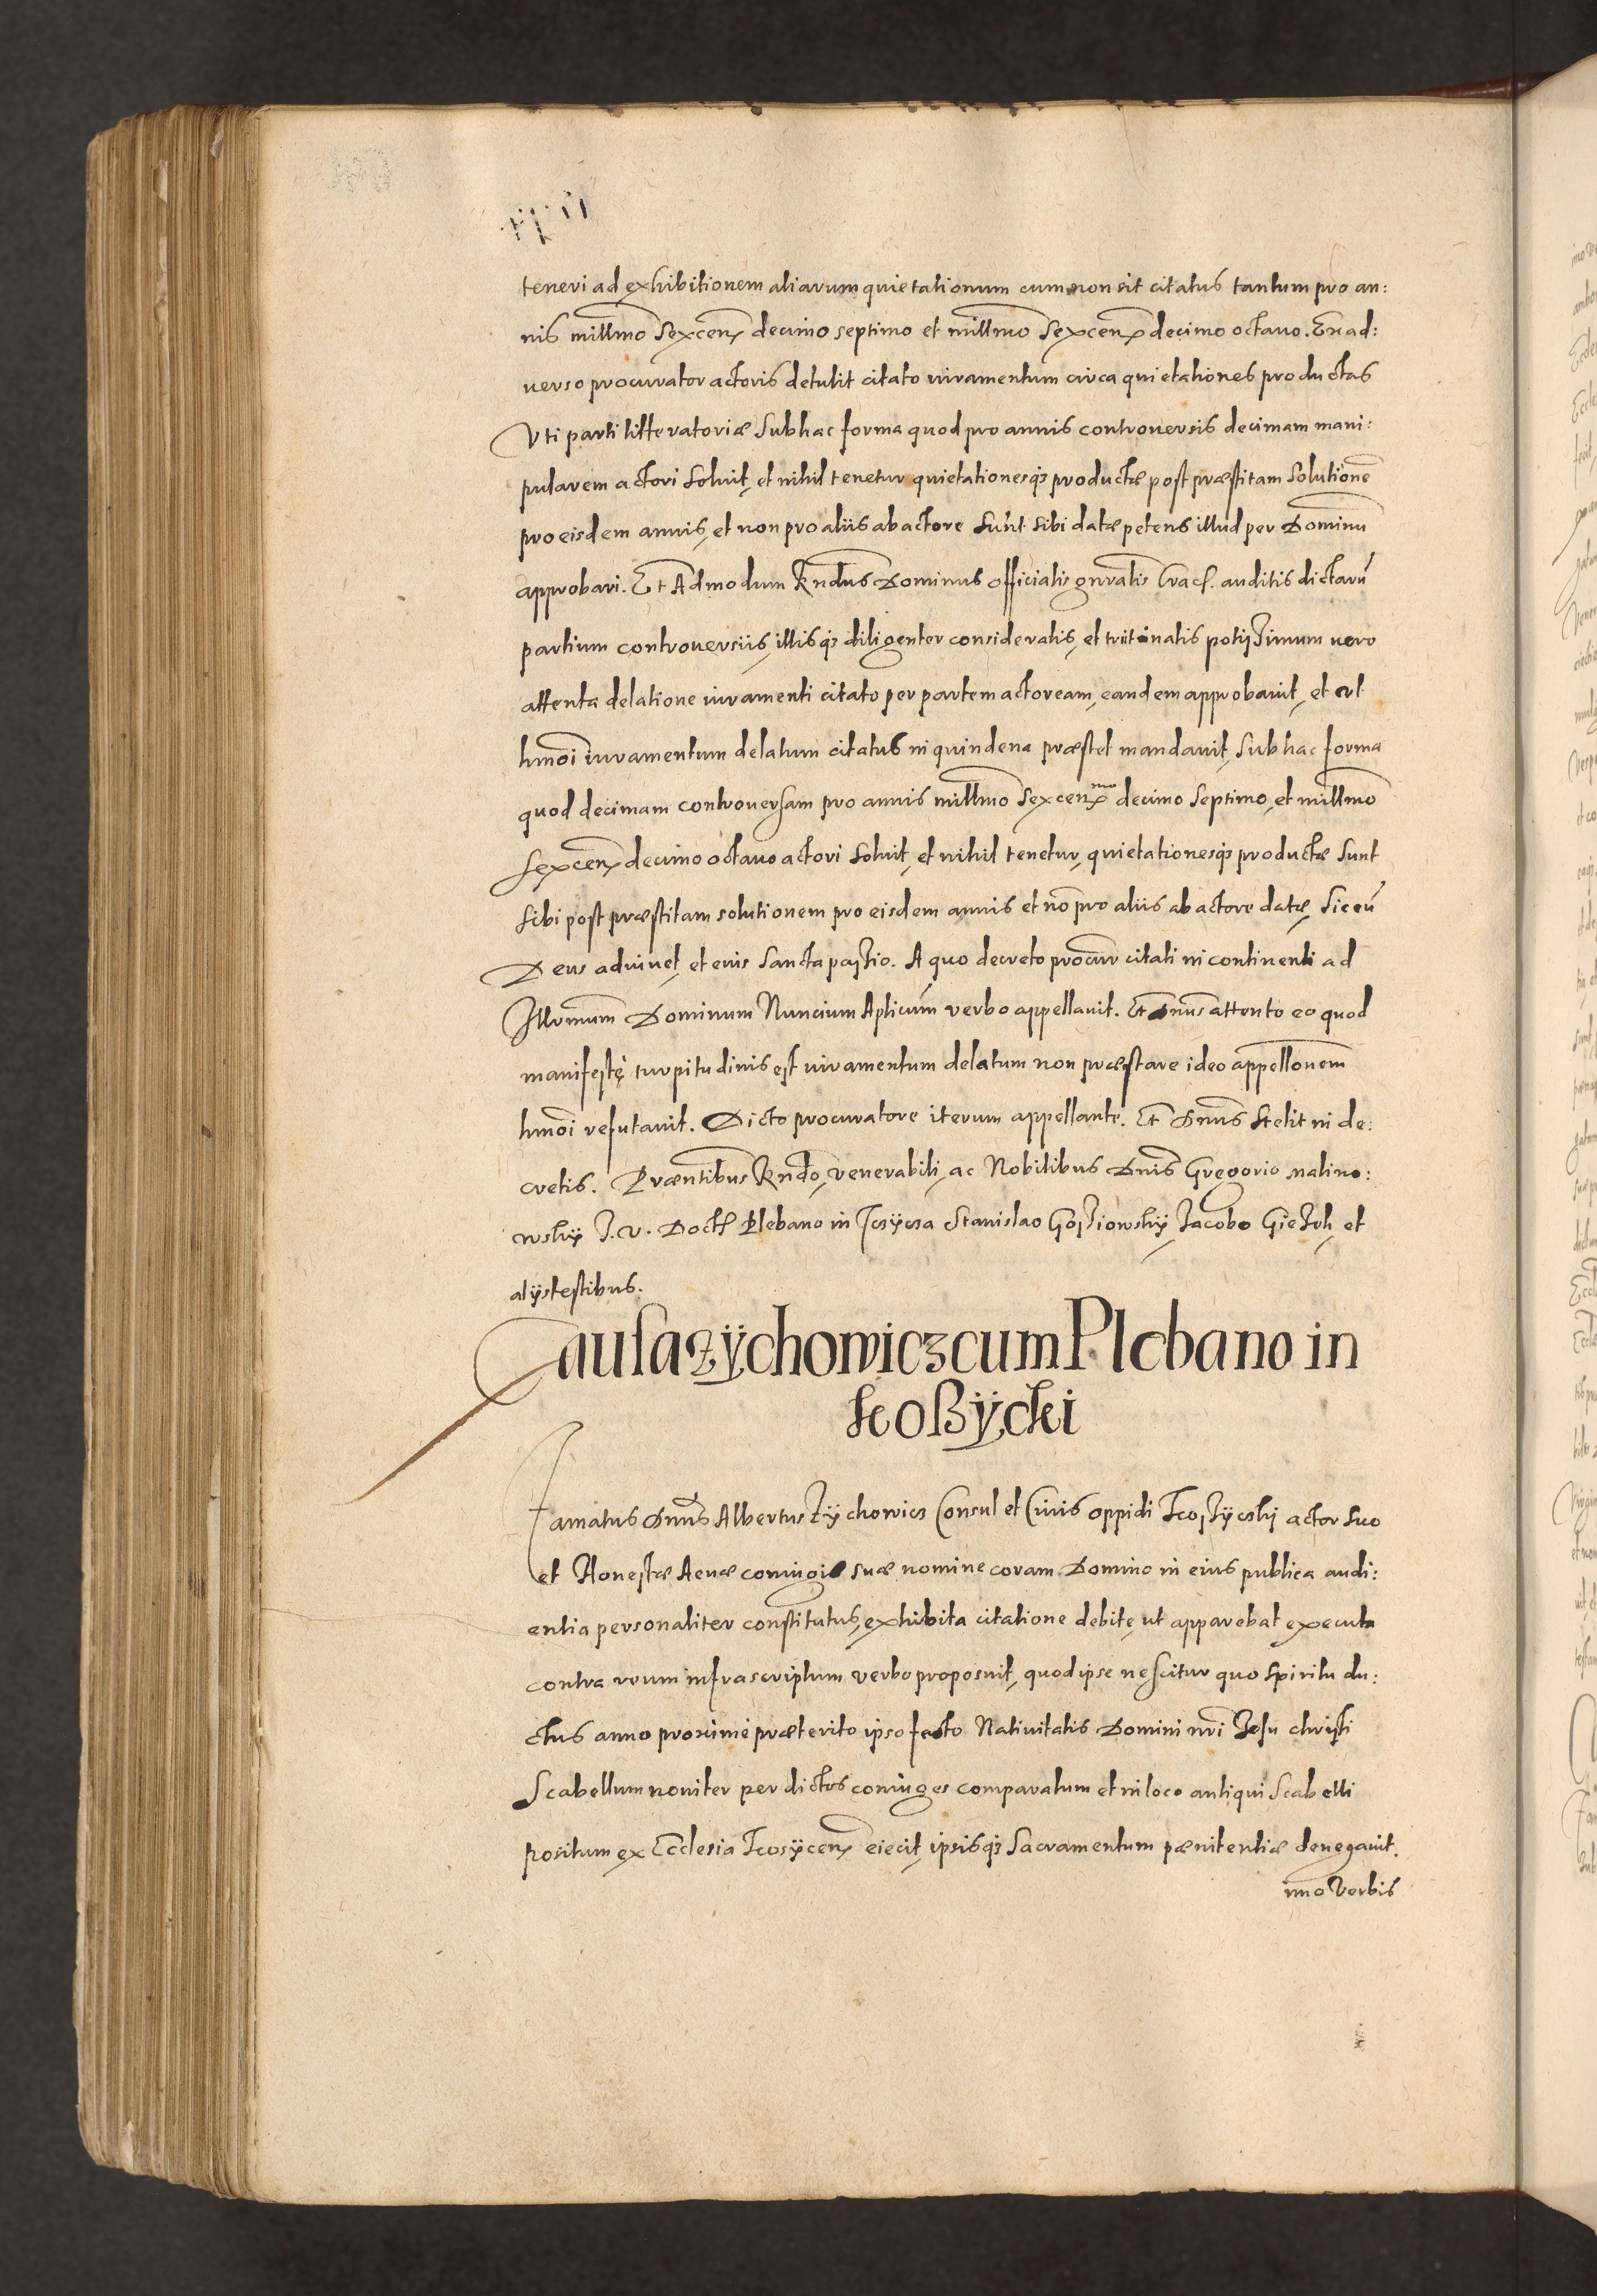 teneri ad exhibitionem aliarum quietationum cum non sit citatus tantum pro an:
nis millmo Sexcen decimo septimo et millmo Sexcen decimo octauo. Exad:
uerso procurator actoris detulit citato iuramentum circa quietationes productas
Uti parti litteratoriæ sub hac forma quod pro annis controuersis decimam mani:
pularem actori soluit, et nihil tenetur quietationesq3 productæ post præstitam solutione
pro eisdem annis, et non pro aliis ab actore sunt sibi datæ petens illud per Dominu
approbari. Et Admodum Rndus Dominus officialis gnralis Crac. auditis dictaru
partium controuersiis, illisq3 diligenter consideratis, et trutinatis potissimum uero
attenta delatione iuramenti citato per partem actoream, eandem approbauit, et ut
hmoi iuramentum delatum citatus in quindena præstet mandauit, sub hac forma
quod decimam controuersam pro annis millmo Sexcen mo decimo septimo, et millmo
sexcen decimo octauo actori soluit, et nihil tenetur, quietationesq3 productæ sunt
sibi post præstitam solutionem pro eisdem annis et no pro aliis ab actore datæ, sic eu
Deus adiuuet, et eius sancta passio. A quo decreto procur citati in continenti ad
Illrmum Dominum Nuncium Aplicum verbo appellauit. Et Dnus attento eo quod
manifestę turpitudinis est iuramentum delatum non præstare ideo appellonem
hmoi refutauit. Dicto procuratore iterum appellante. Et Dnus stetit in de:
cretis. Præntibus Rndo, venerabili, ac Nobilibus Dnis Gregorio nalino:
wskÿ J. V. Doct Plebano in Stanislao Jacobo et
alÿs testibus.
Causa Zÿchowicz cum Plebano in
Koßÿcki
Famatus Dnus Albertus Zÿchowicz Consul et Ciuis oppidi actor suo
et Honestæ coniugis suæ nomine coram Domino in eius publica audi:
entia personaliter constitutus, exhibita citatione debitę ut apparebat executa
contra reum infrascriptum verbo proposuit, quod ipse nescitur quo spiritu du:
ctus anno proximè præterito ipso festo Natiuitatis Domini nri Jesu christi
Scabellum nouiter per dictos coniuges comparatum et in loco antiqui scabelli
positum ex Ecclesia eiecit, ipsisq3 sacramentum pænitentiæ denegauit.
imo verbis